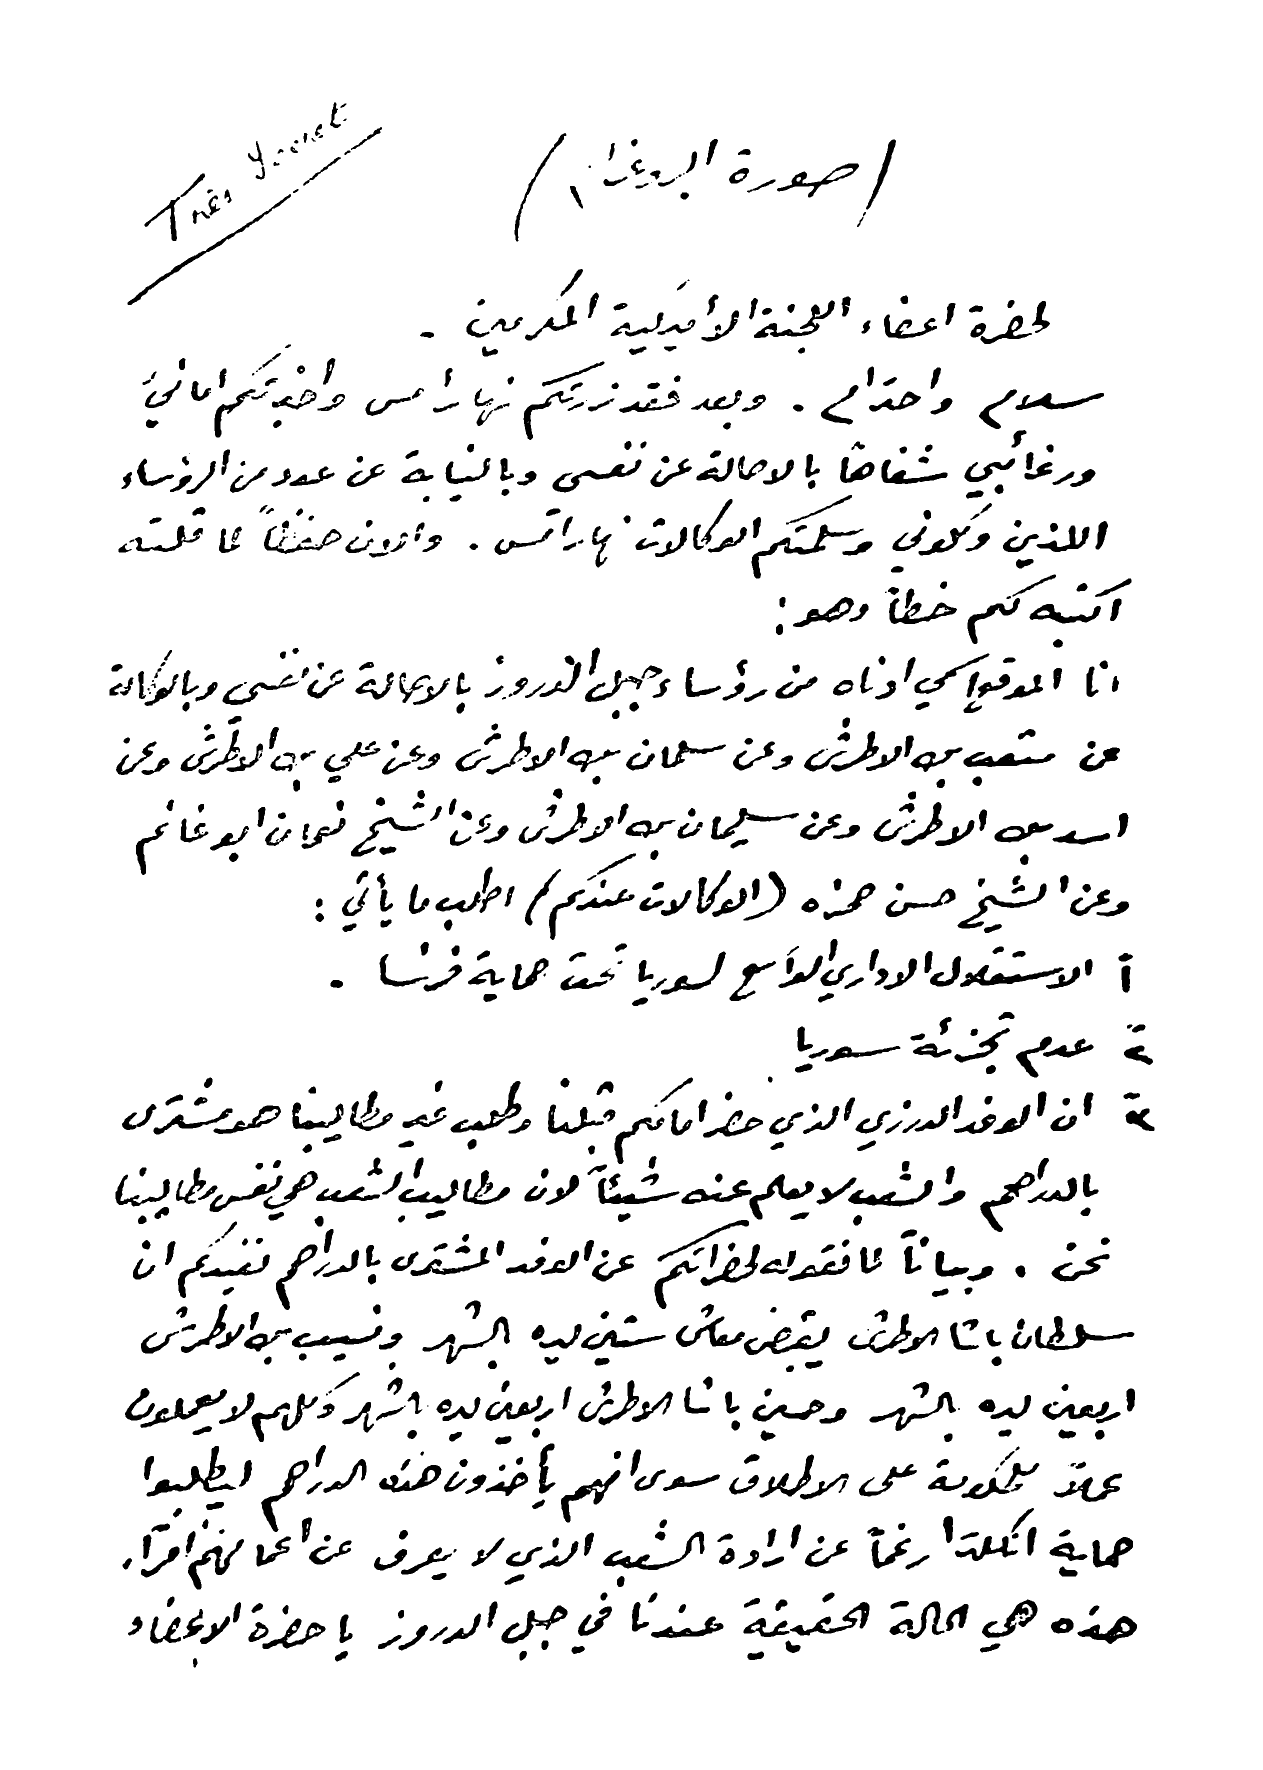 Très Secret
(صورة البروغرام)
لحضرة اعضاء اللجنة الأميركية المكرمين .
سلام واحترام . وبعد فقد زرتكم نهار أمس واخبرتكم اماني
ورغائبي شفاهاً بالاصالة عن نفسي وبالنيابة عن عدد من الرؤساء
اللذين وكلوني وسلمتكم الوكالات نهار امس . والان حفظاً لما قلته
اكتبه لكم خطاً وهو :
انا الموقع اسمي ادناه من رؤساء جبل الدروز بالاصالة عن نفسي وبالوكالة
عن متعب بك الاطرش وعن سلمان بك الاطرش وعن علي بك الاطرش وعن
اسد بك الاطرش وعن سليمان بك الاطرش وعن الشيخ نعمان ابو غانم
وعن الشيخ حسن حمزه (الوكالات عندكم) اطلب ما يأتي :
١ً الاستقلال الاداري الواسع لسوريا تحت حماية فرنسا .
٢ً عدم تجزئة سوريا
٣ً ان الوفد الدرزي الذي حضر امامكم قبلنا وطلب غير مطاليبنا هو مشترى
بالدراهم والشعب لا يعلم عنه شيئاً لان مطاليب الشعب هي نفس مطاليبنا
نحن . وبياناً لما نقوله لحضراتكم عن الوفد المشترى بالدراهم نفيدكم ان
سلطان باشا الاطرش يقبض معاش ستين ليره بالشهر ونسيب بك الاطرش
اربعين ليره بالشهر وحسين باشا الاطرش اربعين ليره بالشهر وكلهم لا يعملون
عملاً للحكومة على الاطلاق سوى انهم يأخذون هذه الدراهم ليطلبوا
حماية انكلترا رغماً عن ارادة الشعب الذي لا يعرف عن اعمالهم
هذه هي الحالة الحقيقية عندنا في جبل الدروز يا حضرة الاعضاء